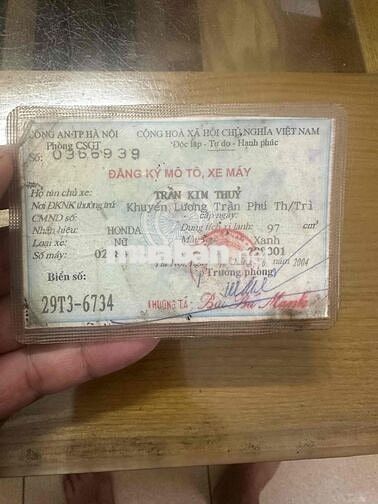 CÔNG AN-TP HÀ NỘI CỘNG HOÀ XÃ HỘI CHỦ NGHĨA VIỆT NAM
Phòng CSGT Độc lập - Tự do - Hạnh phúc
Số: 0366939
ĐĂNG KÝ MÔ TÔ, XE MÁY
Họ tên chủ xe: TRẦN KIM THUỶ
Nơi ĐKNK thường trú: Khuyến Lương Trần Phú Th/Trì
CMND số: cấp ngày:
Nhãn hiệu: HONDA Dung tích xi lanh: 97 cm³
Loại xe: Nữ Màu Xanh
Số máy: 301
2004
Trưởng phòng
Biển số:
29T3-6734 THƯỢNG TÁ